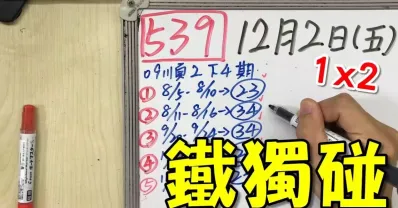 539
12月2日(五)
1x2
09順2下4期
① 8/5-8/10→23
② 8/11-8/16→34
③
④
⑤
鐵獨碰